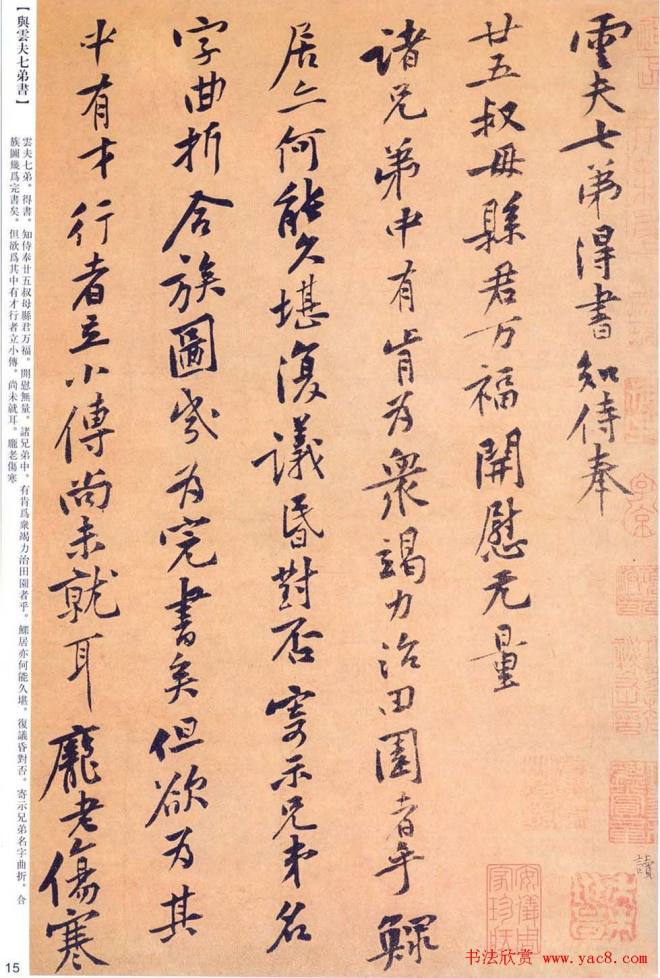 雲夫七弟得書知侍奉
廿五叔母縣君万福開慰无量
諸兄弟中有肯为衆竭力治田園者乎鰥
居亦何能久堪復議昏對否寄示兄弟名
字曲折合族圖幾为完書矣但欲为其
中有才行者立小傳尚未就耳龐老傷寒
讀
安儀周
家珍藏
【與雲夫七弟書】
雲夫七弟。得書。知侍奉廿五叔母縣君万福。開慰無量。諸兄弟中。有肯爲衆竭力治田園者乎。鰥居亦何能久堪。復議昏對否。寄示兄弟名字曲折。合
族圖幾爲完書矣。但欲爲其中有才行者立小傳。尚未就耳。龐老傷寒
15
书法欣赏
www.yac8.com